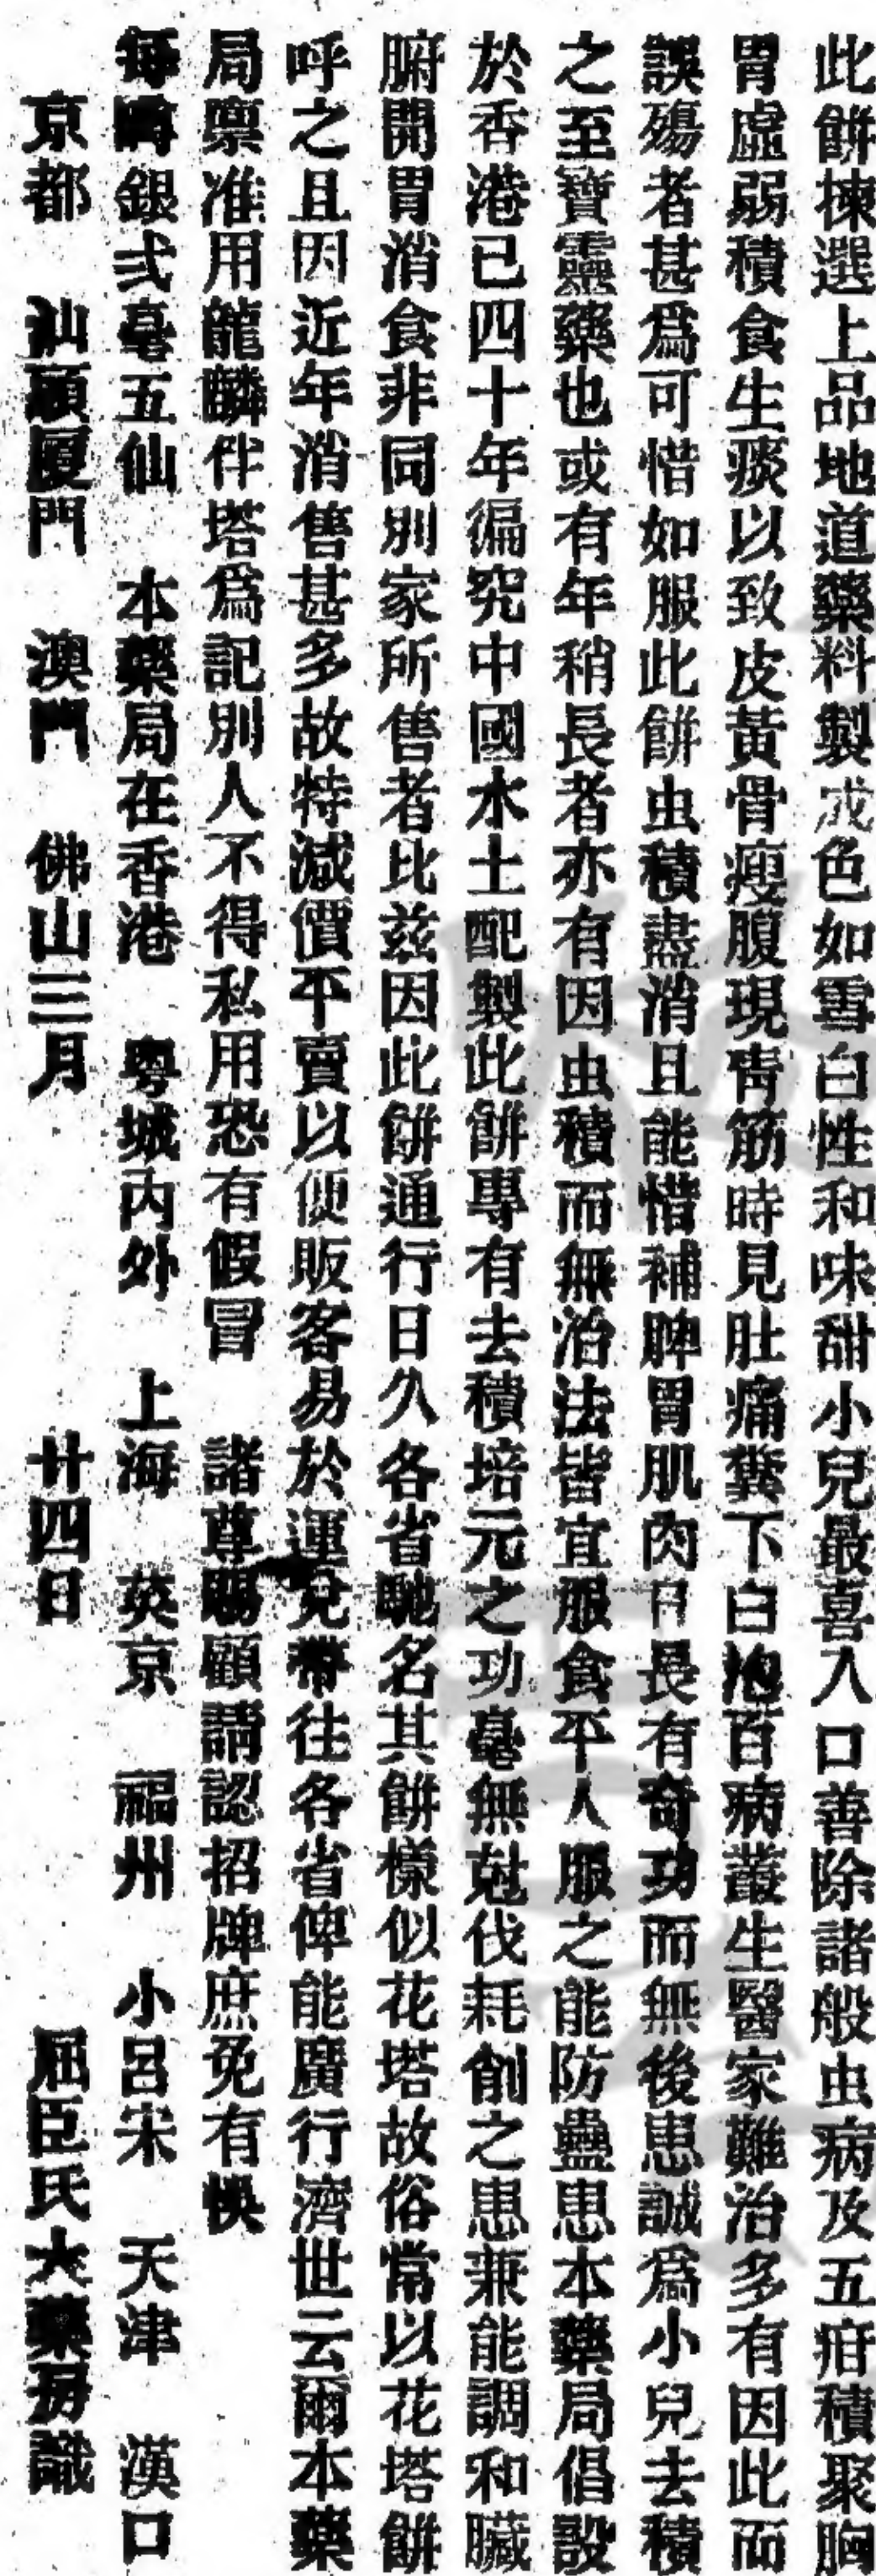 此餅揀選上品地道藥料製成色如雪白性和味甜小兒最喜入口善除諸般虫病及五疳積聚胸
胃虛弱積食生痰以致皮黃骨瘦腹現靑筋時見肚痛糞下白抱百病叢生醫家難治多有因此而
誤殤者甚爲可惜如服此餅虫積盡消且能惜補脾胃肌肉日長有奇功而無後患誠爲小兒去積
之至寶靈藥也或有年稍長者亦有因虫積而無治法皆宜服食平人服之能防蠱患本藥局倡設
於香港已四十年徧究中國水土配製此餅專有去積培元之功毫無尅伐耗削之患兼能調和臟
腑開胃消食非同別家所售者比兹因此餅通行日久各省馳名其餅樣似花塔故俗常以花塔餅
呼之且因近年消售甚多故特減價平賣以便販客易於運兌帶往各省俾能廣行濟世云爾本藥
局禀准用龍麟伴塔爲記別人不得私用恐有假冒 諸尊賜顧請認招牌庶免有悞
每嚹銀弍毫五仙 本藥局在香港 粵城內外 上海 英京 福州 小呂宋 天津 漢口
京都 汕頭厦門 澳門 佛山三月 廿四日 屈臣氏大藥房識